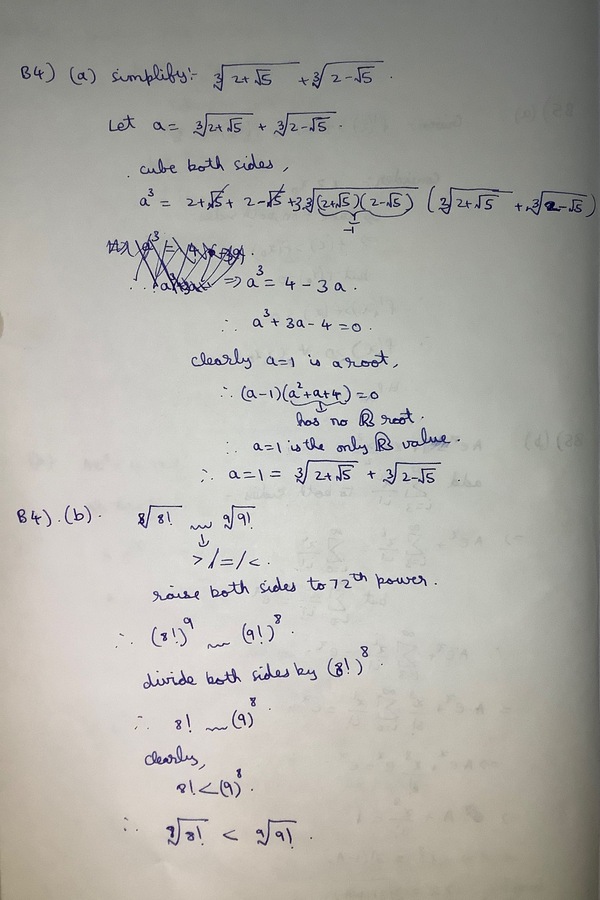 B4) (a) simplify:- ∛(2+√5) + ∛(2-√5) .
Let a = ∛(2+√5) + ∛(2-√5) .
. cube both sides,
a³ = 2+√5 + 2-√5 + 3.∛((2+√5)(2-√5)) (∛(2+√5) + ∛(2-√5))
-1
⇒ a³ = 4 - 3a .
∴ a³ + 3a - 4 = 0 .
clearly a=1 is a root,
∴ (a-1)(a²+a+4) = 0
has no ℝ root.
∴ a=1 is the only ℝ value.
∴ a = 1 = ∛(2+√5) + ∛(2-√5) .
B4).(b). ⁸√8! ~ ⁹√9!
↓
> / = / < .
raise both sides to 72th power.
∴ (8!)⁹ ~ (9!)⁸ .
divide both sides by (8!)⁸
∴ 8! ~ (9)⁸ .
clearly,
8! < (9)⁸ .
∴ ⁸√8! < ⁹√9! .